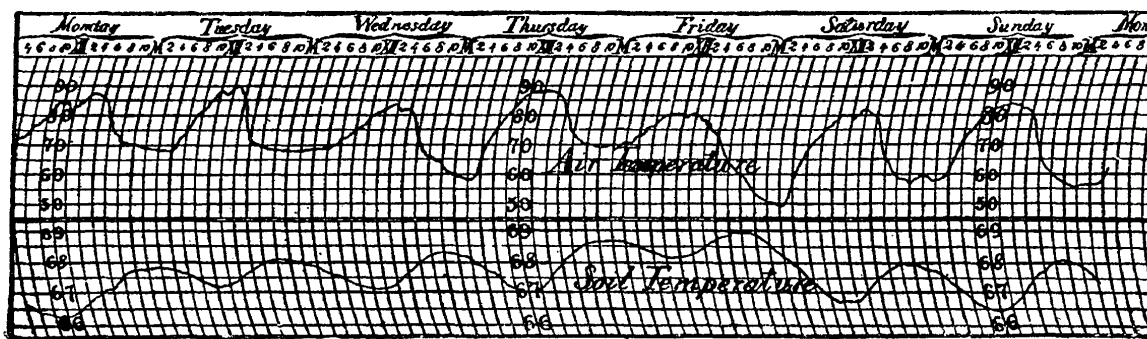 Monday Tuesday Wednesday Thursday Friday Saturday Sunday Mon
4 6 8 10 XII 2 4 6 8 10 M 2 4 6 8 10 XII 2 4 6 8 10 M 2 4 6 8 10 XII 2 4 6 8 10 M 2 4 6 8 10 XII 2 4 6 8 10 M 2 4 6 8 10 XII 2 4 6 8 10 M 2 4 6 8 10 XII 2 4 6 8 10 M 2 4 6 8 10 XII 2 4 6 8 10 M 2 4 6 8
90 90 90
80 80 80
70 70 70
Air Temperature
60 60 60
50 50 50
69 69 69
68 68 68
Soil Temperature
67 67 67
66 66 66